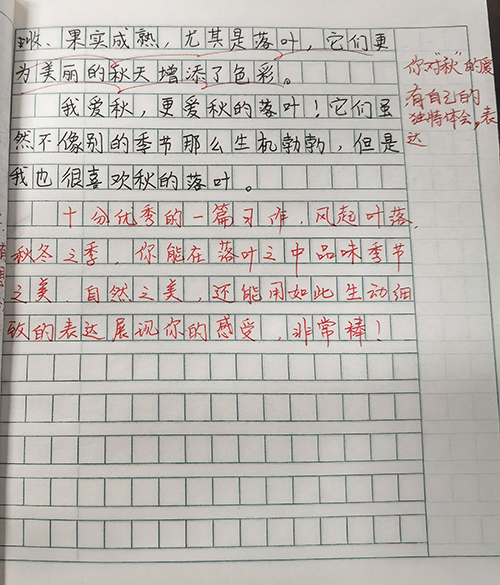 收、果实成熟，尤其是落叶，它们更
为美丽的秋天增添了色彩。
我爱秋，更爱秋的落叶！它们虽
然不像别的季节那么生机勃勃，但是
我也很喜欢秋的落叶。
十分优秀的一篇习作，风起叶落，
秋冬之季，你能在落叶之中品味季节
之美，自然之美，还能用如此生动细
致的表达展现你的感受，非常棒！
你对“秋”的爱
有自己的
独特体会，表
达